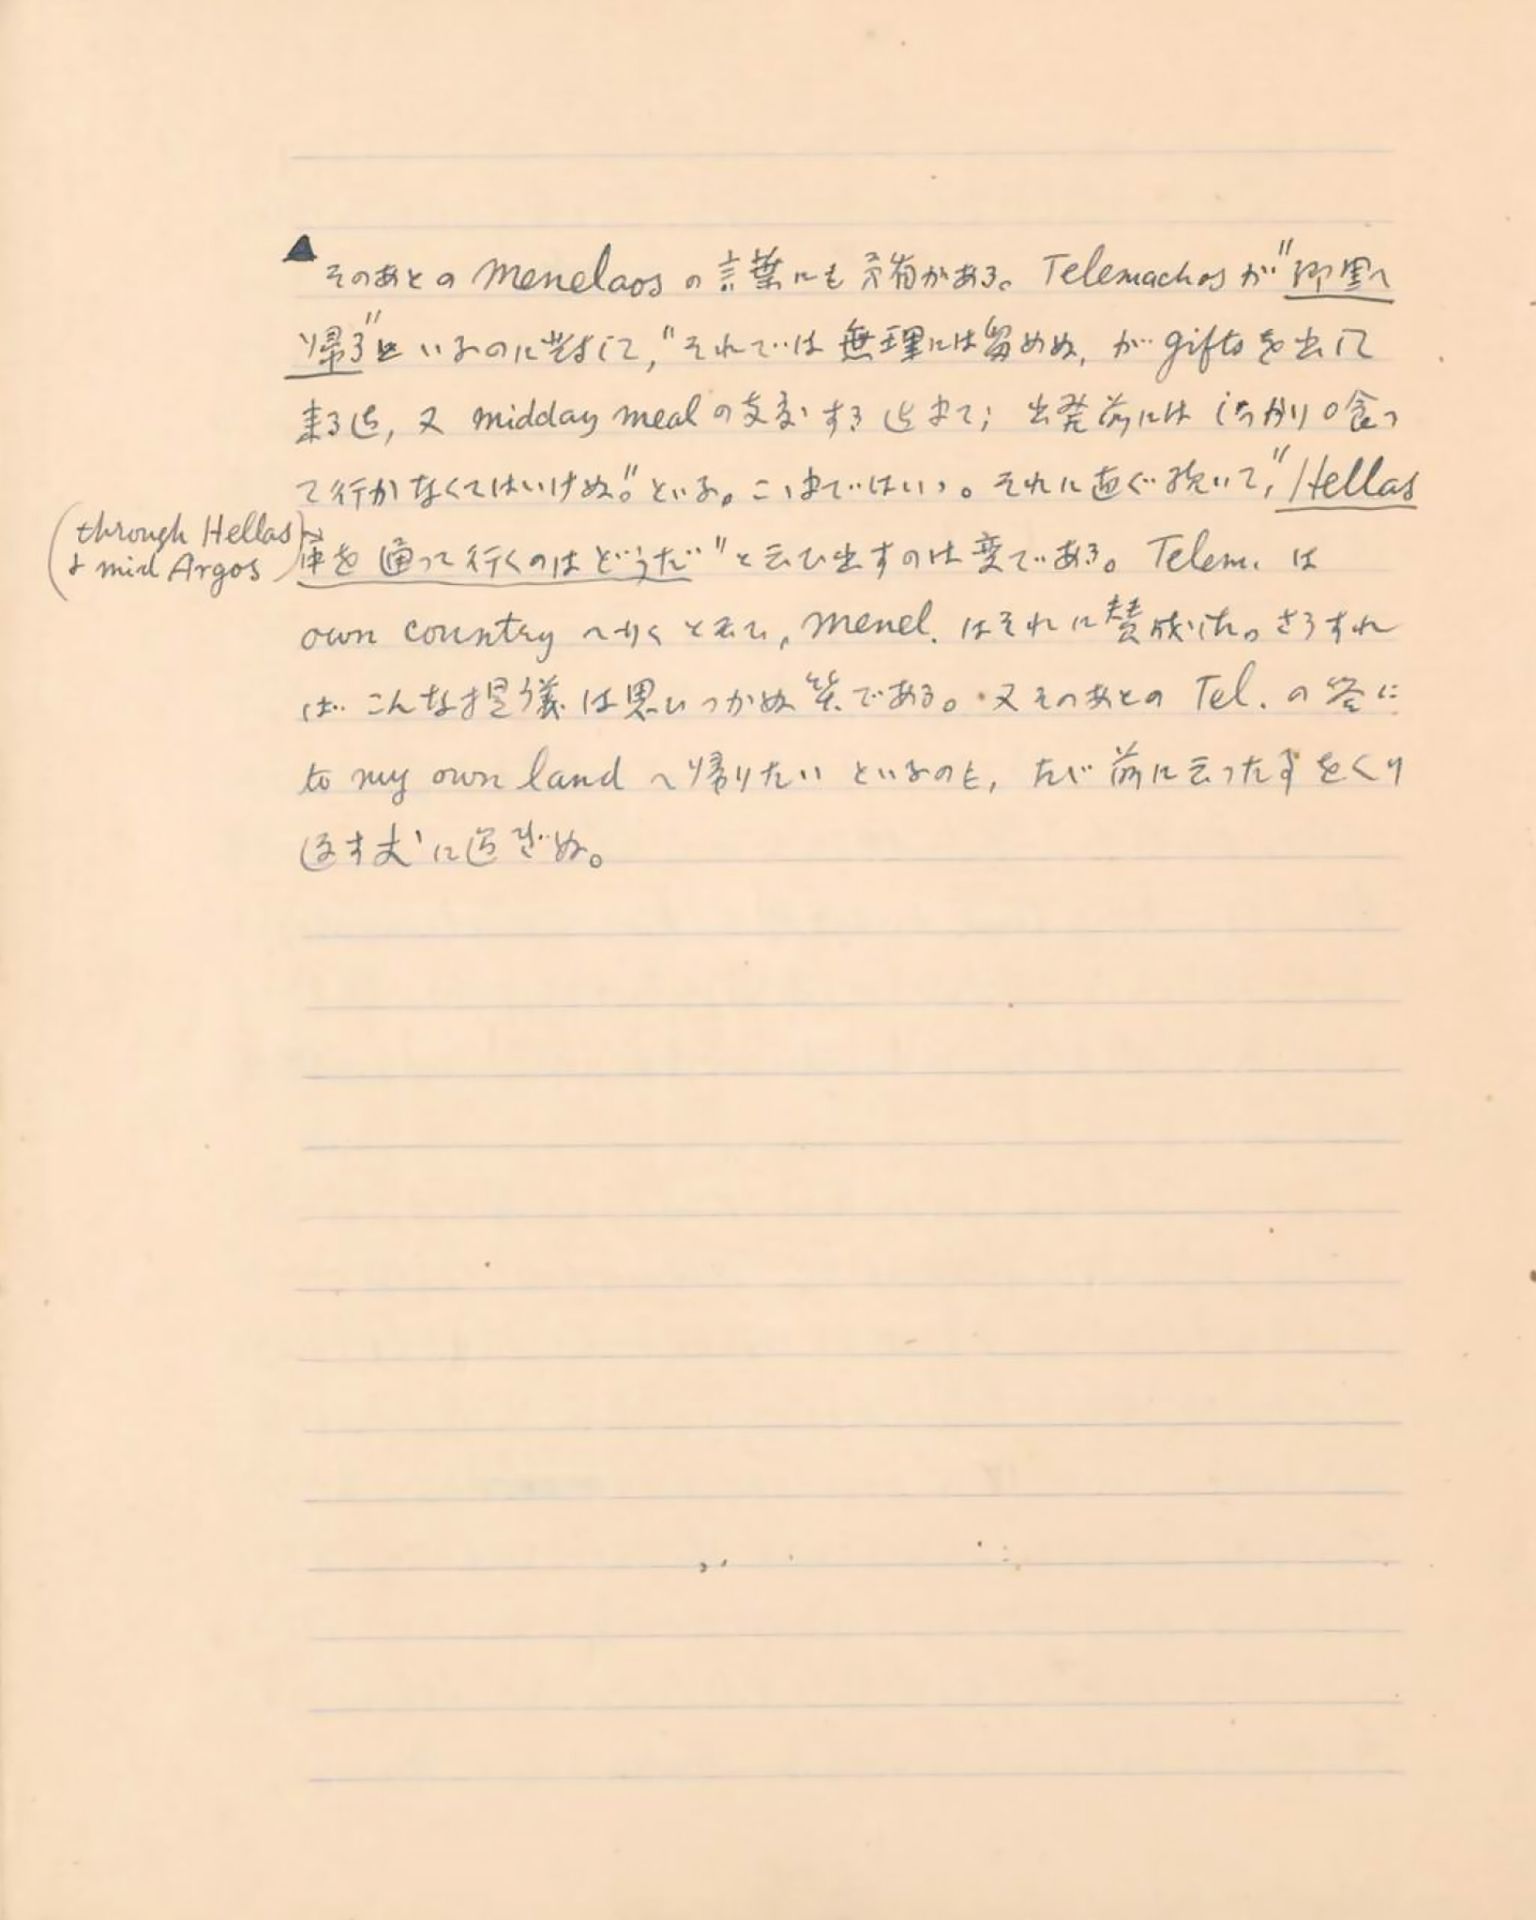 そのあとの Menelaos の言葉にも矛盾がある。Telemachos が"郷里へ
帰る"といふのに対して,"それでは無理には留めぬ, が gifts を出して
来る迄, 又 midday meal の支度する迄まて; 出発前にはしっかり食っ
て行かなくてはいけぬ。"といふ。こゝまではいゝ。それに直ぐ続いて,"Hellas
(through Hellas
& mid Argos)
を通って行くのはどうだ"と云ひ出すのは変である。Telem. は
own country へ行くと云ひ, Menel. はそれに賛成した。さうすれ
ば こんな提議は思ひつかぬ筈である。又そのあとの Tel. の答に
to my own land へ帰りたい といふのも, たゞ前に云った事をくり
返す丈に過ぎぬ。